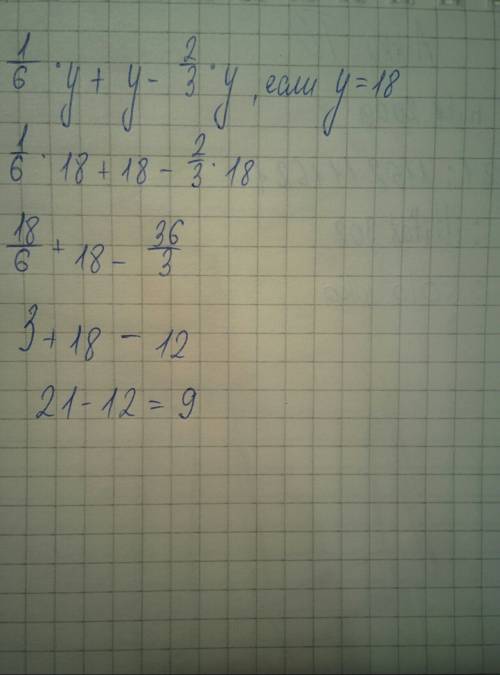 1/6 · y + y - 2/3 · y, если y = 18
1/6 · 18 + 18 - 2/3 · 18
18/6 + 18 - 36/3
3 + 18 - 12
21 - 12 = 9